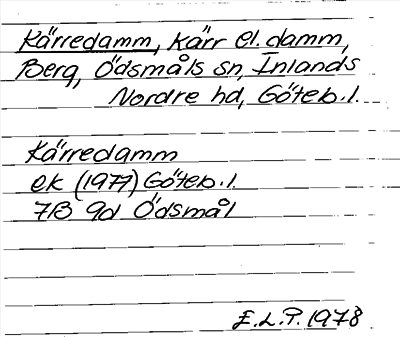 Kärredamm, kärr el. damm,
Berg, Ödsmåls sn, Inlands
Nordre hd, Göteb. l.
Kärredamm
ek (1977) Göteb. l.
7B 9d Ödsmål
E.L.P. 1978